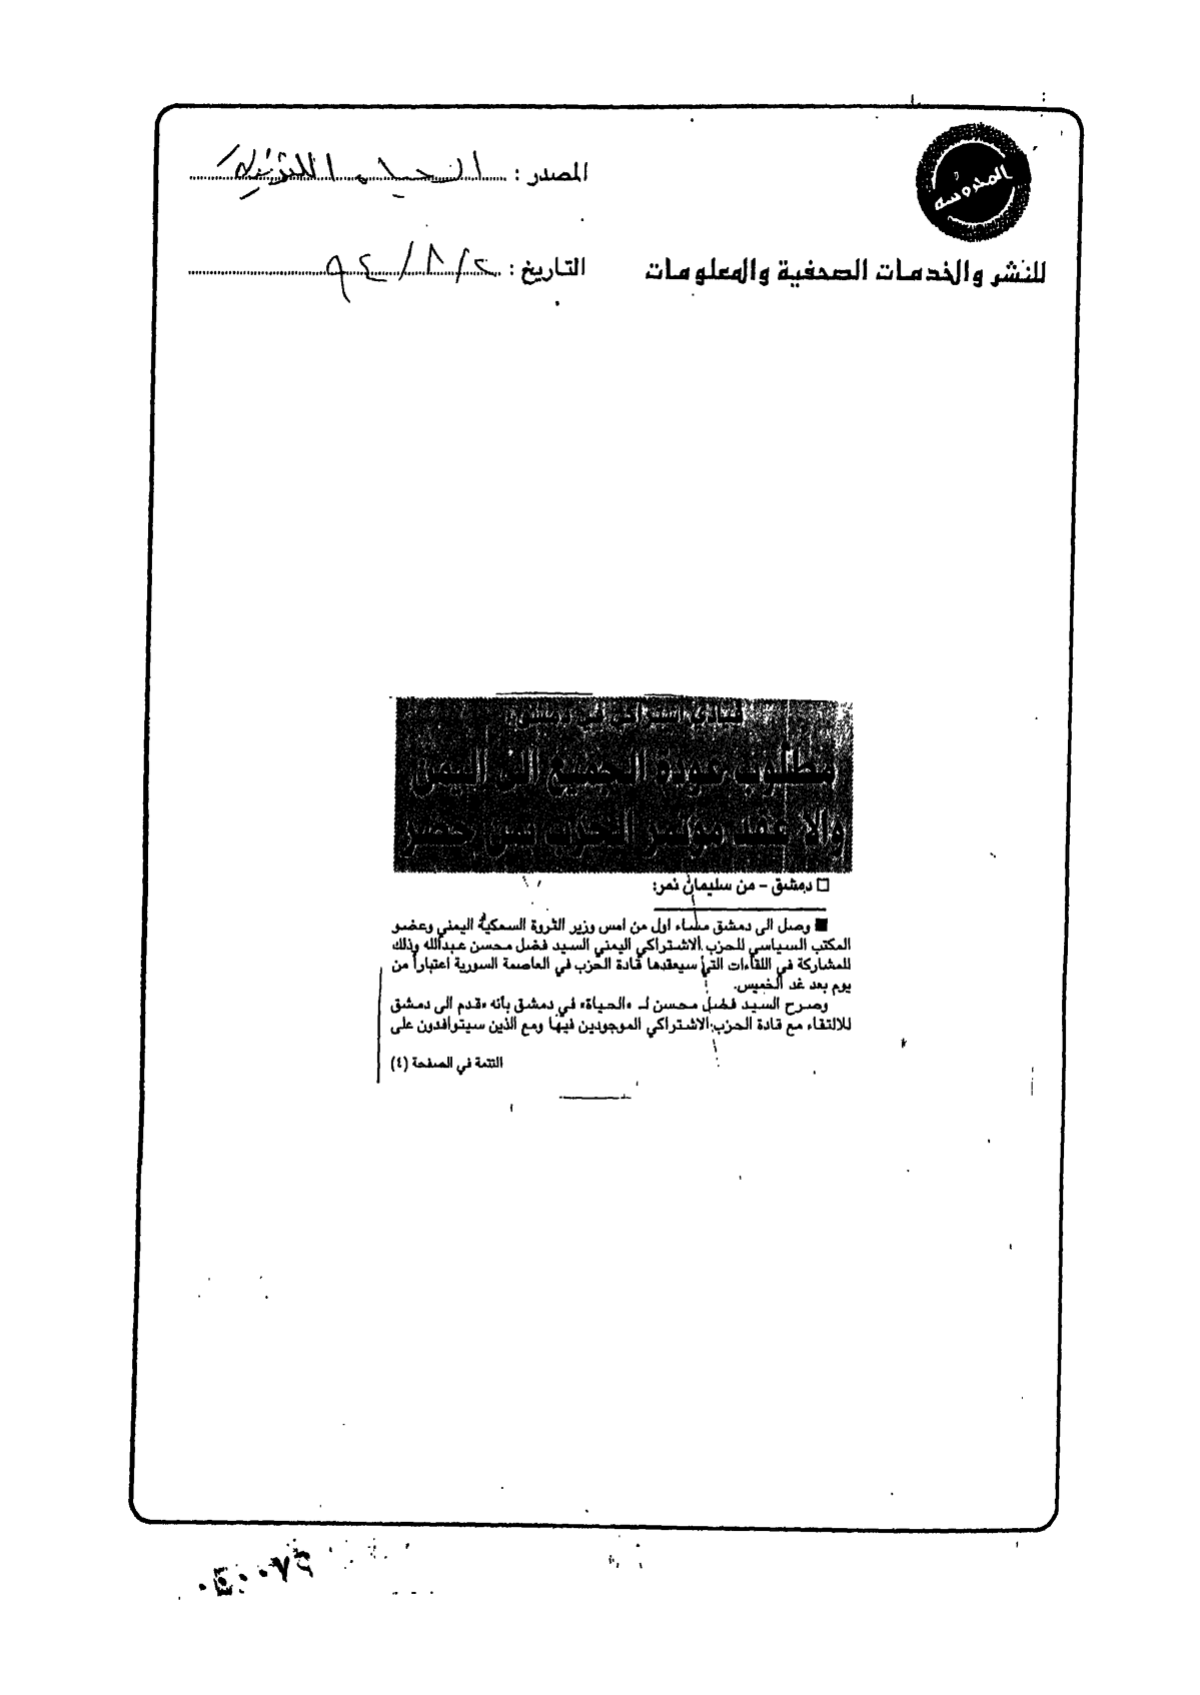 المحروسة
المصدر : الحياة اللندنية
للنشر والخدمات الصحفية والمعلومات
التاريخ : ٢ / ٨ / ٩٤
قيادي اشتراكي في دمشق:
مطلوب عودة الجميع الى اليمن
والا عقد مؤتمر الحزب بمن حضر
□ دمشق – من سليمان نمر:
■ وصل الى دمشق مساء اول من امس وزير الثروة السمكية اليمني وعضو
المكتب السياسي للحزب الاشتراكي اليمني السيد فضل محسن عبدالله وذلك
للمشاركة في اللقاءات التي سيعقدها قادة الحزب في العاصمة السورية اعتباراً من
يوم بعد غد الخميس.
وصرح السيد فضل محسن لـ «الحياة» في دمشق بأنه «قدم الى دمشق
للالتقاء مع قادة الحزب الاشتراكي الموجودين فيها ومع الذين سيتوافدون على
التتمة في الصفحة (٤)